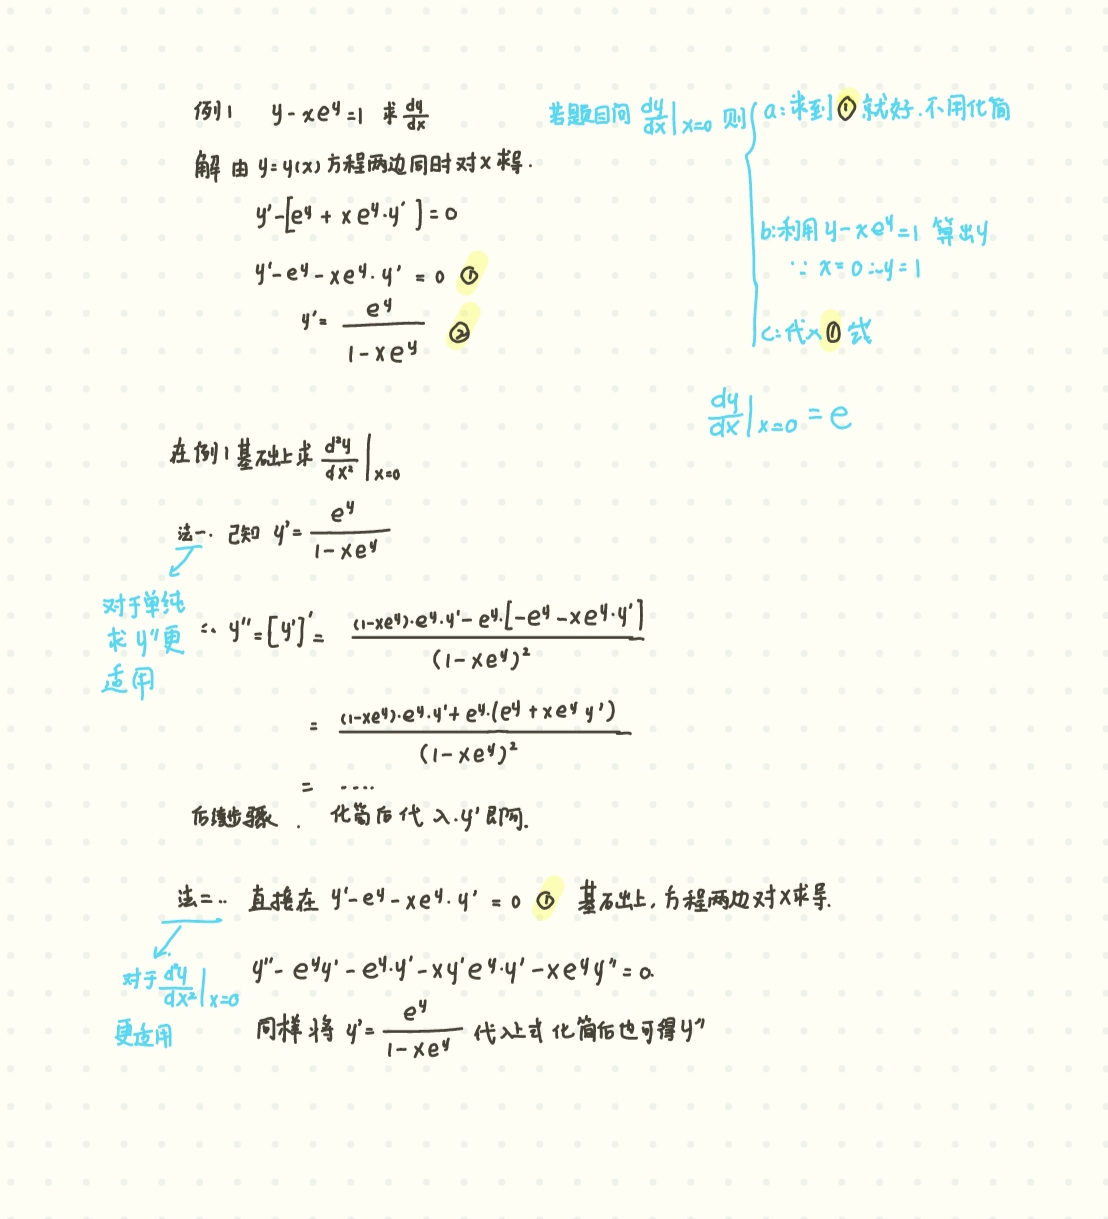 例1 y - xe^y = 1 求 dy/dx
解 由 y=y(x) 方程两边同时对x求导.
y' - [e^y + xe^y·y'] = 0
y' - e^y - xe^y·y' = 0 ①
y' = e^y / (1 - xe^y) ②
若题目问 dy/dx|x=0 则
a:求到①就好.不用化简
b:利用 y - xe^y = 1 算出y
∵ x = 0 ∴ y = 1
c:代入①式
dy/dx|x=0 = e
在例1基础上求 d²y/dx²|x=0
法一. 已知 y' = e^y / (1 - xe^y)
对于单纯
求 y'' 更
适用
∴ y'' = [y']' = ((1-xe^y)·e^y·y' - e^y·[-e^y - xe^y·y']) / (1 - xe^y)²
= ((1-xe^y)·e^y·y' + e^y·(e^y + xe^y y')) / (1 - xe^y)²
= ....
后续步骤. 化简后代入.y'即可.
法二.. 直接在 y' - e^y - xe^y·y' = 0 ① 基础上,方程两边对x求导.
对于 d²y/dx²|x=0
更适用
y'' - e^y y' - e^y·y' - xy'e^y·y' - xe^y y'' = 0.
同样将 y' = e^y / (1 - xe^y) 代入上式化简后也可得y''